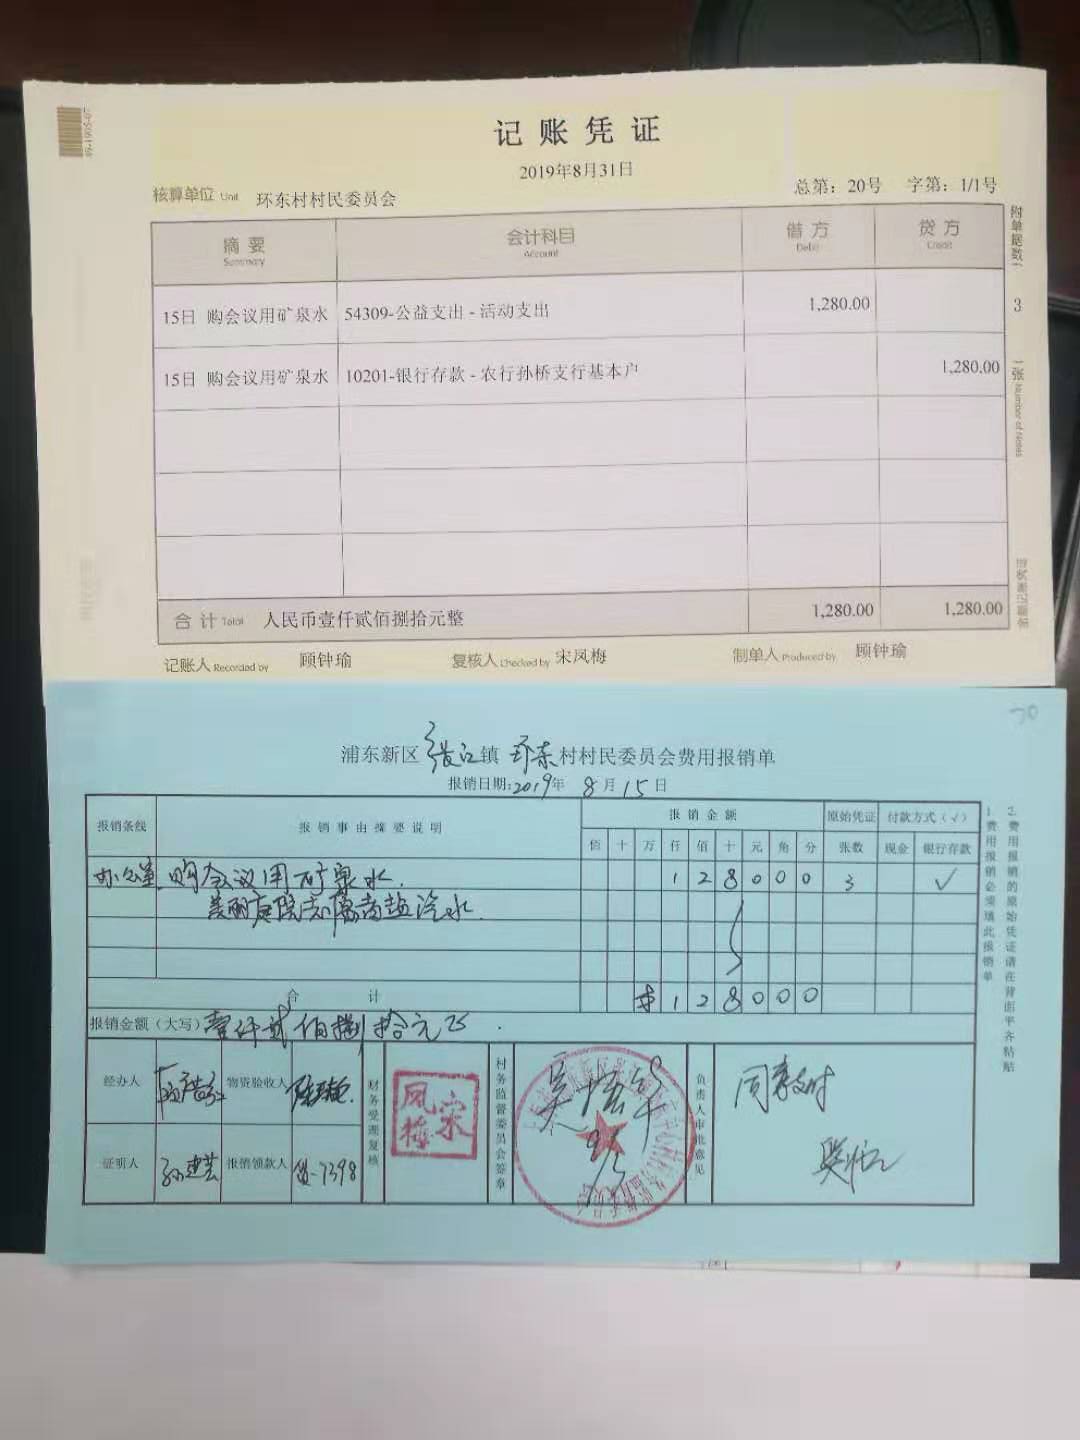 记账凭证
2019年8月31日
核算单位 Unit 环东村村民委员会 总第：20号 字第：1/1号
摘要 会计科目 借方 贷方
Summary Account Debit Credit
15日 购会议用矿泉水 54309-公益支出 - 活动支出 1,280.00
15日 购会议用矿泉水 10201-银行存款 - 农行孙桥支行基本户 1,280.00
合计 Total 人民币壹仟贰佰捌拾元整 1,280.00 1,280.00
记账人 Recorded by 顾钟瑜 复核人 Checked by 宋凤梅 制单人 Produced by 顾钟瑜
附单据数 3 张 Number of Notes
70
浦东新区 张江 镇 环东 村村民委员会费用报销单
报销日期:2019年 8月15日
报销条线 报销事由摘要说明 报销金额 原始凭证 付款方式（√）
佰 十 万 仟 佰 十 元 角 分 张数 现金 银行存款
办公室 购会议用矿泉水. 1 2 8 0 0 0 3 √
盐汽水
合计 1 2 8 0 0 0
报销金额（大写）壹仟贰佰捌拾元正.
经办人 物资验收人 财务受理复核 宋凤梅 村务监督委员会签章 负责人审批意见 同意支付
证明人 孙建芸 报销领款人 银-7398
1.费用报销必须填此报销单
2.费用报销的原始凭证请在背面平齐粘贴